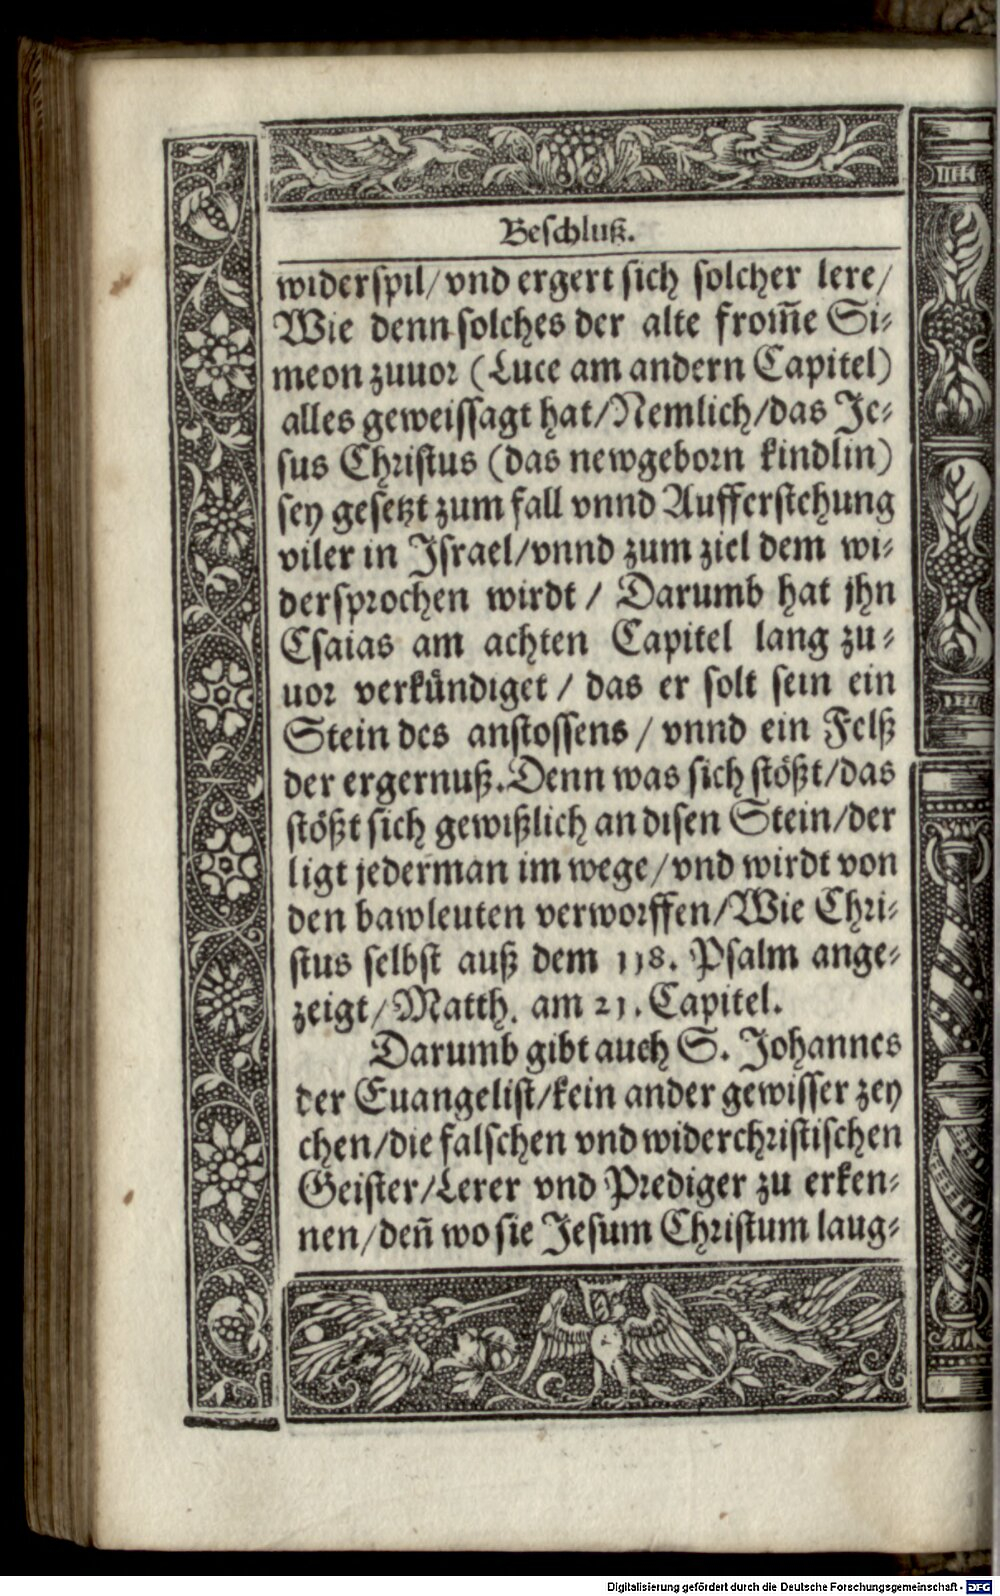 Beschluß.
widerspil/vnd ergert sich solcher lere/
Wie denn solches der alte from̃e Si⸗
meon zuuor (Luce am andern Capitel)
alles geweissagt hat/Nemlich/das Je⸗
sus Christus (das newgeborn kindlin)
sey gesetzt zum fall vnnd Aufferstehung
viler in Israel/vnnd zum ziel dem wi⸗
dersprochen wirdt / Darumb hat jhn
Esaias am achten Capitel lang zu⸗
uor verkündiget / das er solt sein ein
Stein des anstossens / vnnd ein Felß
der ergernuß.Denn was sich stößt/das
stößt sich gewißlich an disen Stein/der
ligt jederman im wege/vnd wirdt von
den bawleuten verworffen/Wie Chri⸗
stus selbst auß dem 118. Psalm ange⸗
zeigt/Matth. am 21. Capitel.
Darumb gibt auch S. Johannes
der Euangelist/kein ander gewisser zey
chen/die falschen vnd widerchristischen
Geister/Lerer vnd Prediger zu erken⸗
nen/deñ wo sie Jesum Christum laug⸗
Digitalisierung gefördert durch die Deutsche Forschungsgemeinschaft - DFG